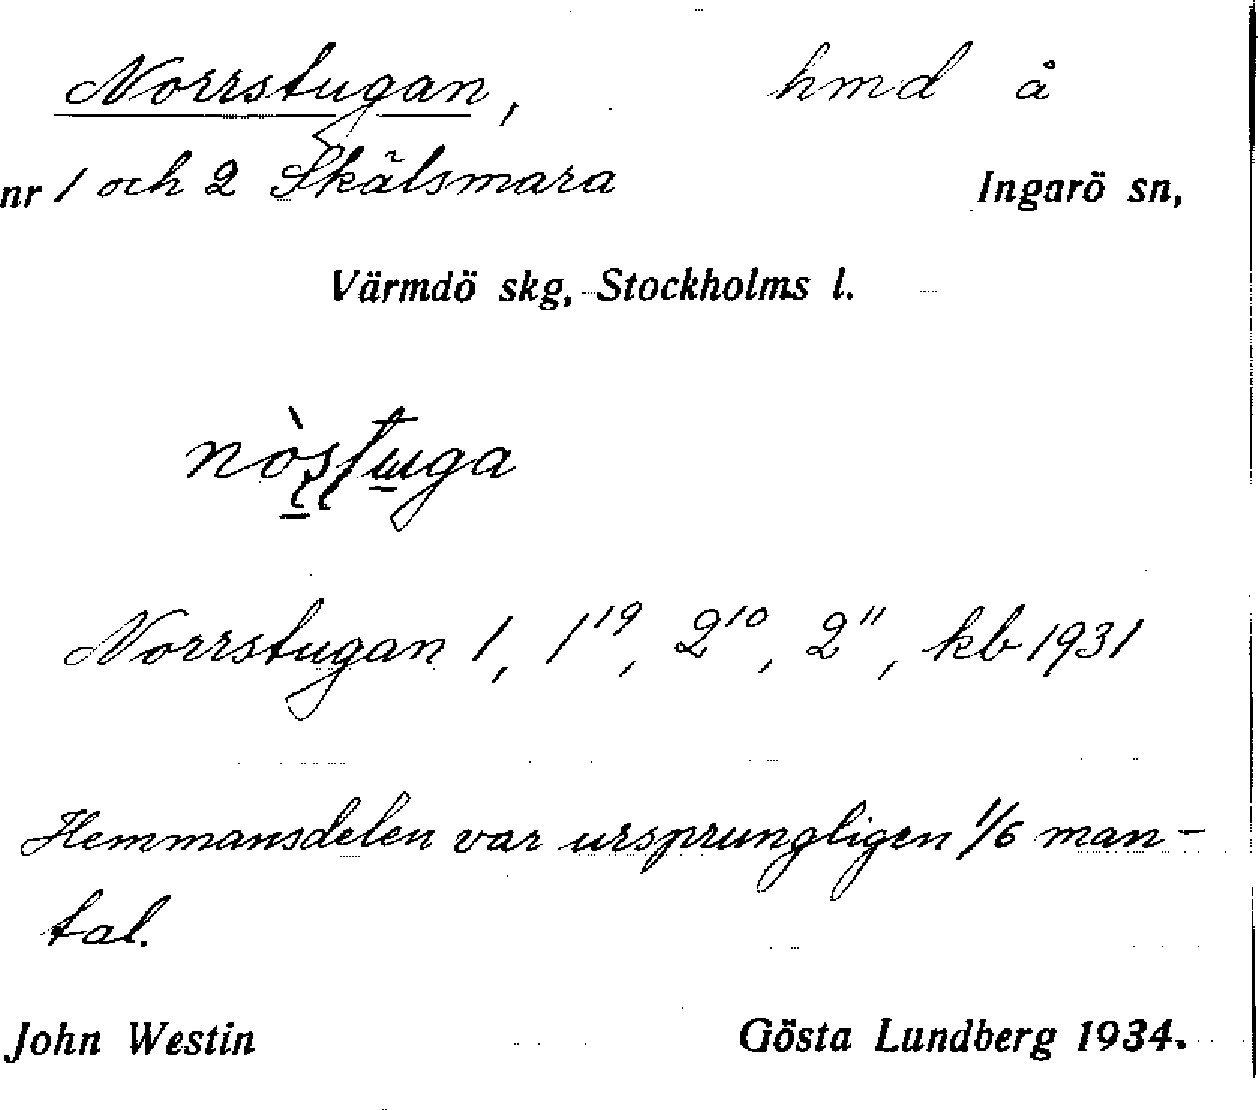 Norrstugan, hmd å
nr 1 och 2 Skälsmara Ingarö sn,
Värmdö skg, Stockholms l.
Norrstugan 1, 1¹⁹, 2¹⁰, 2¹¹, kb 1931
Hemmansdelen var ursprungligen 1/6 man-
tal.
John Westin Gösta Lundberg 1934.